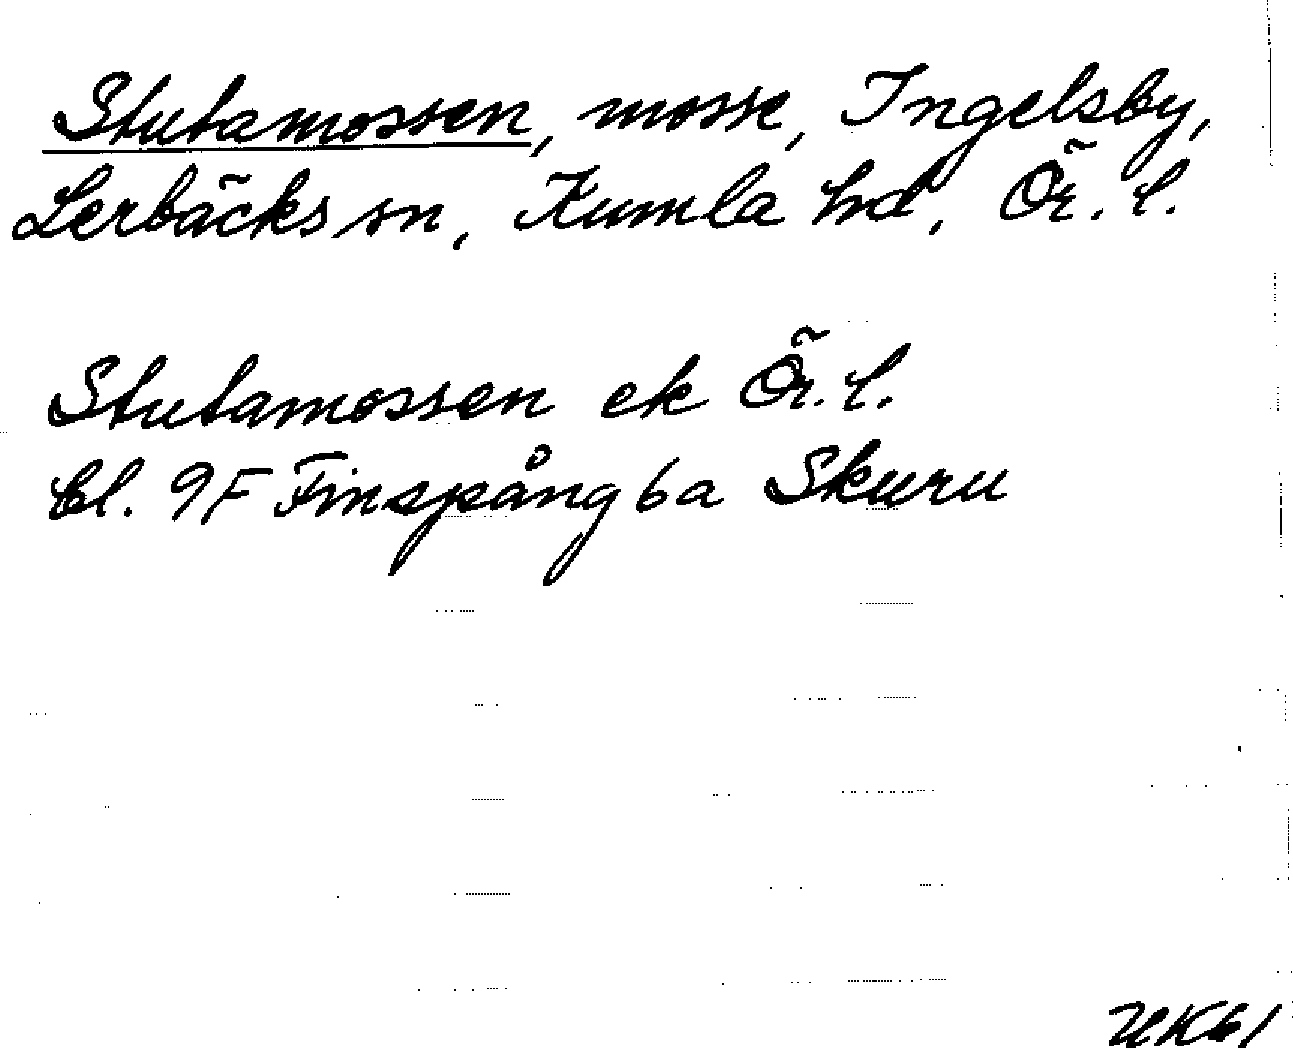 Stutamossen, mosse, Ingelsby,
Lerbäcks sn, Kumla hd, Ör. l.
Stutamossen ek Ör. l.
bl. 9F Finspång 6a Skuru